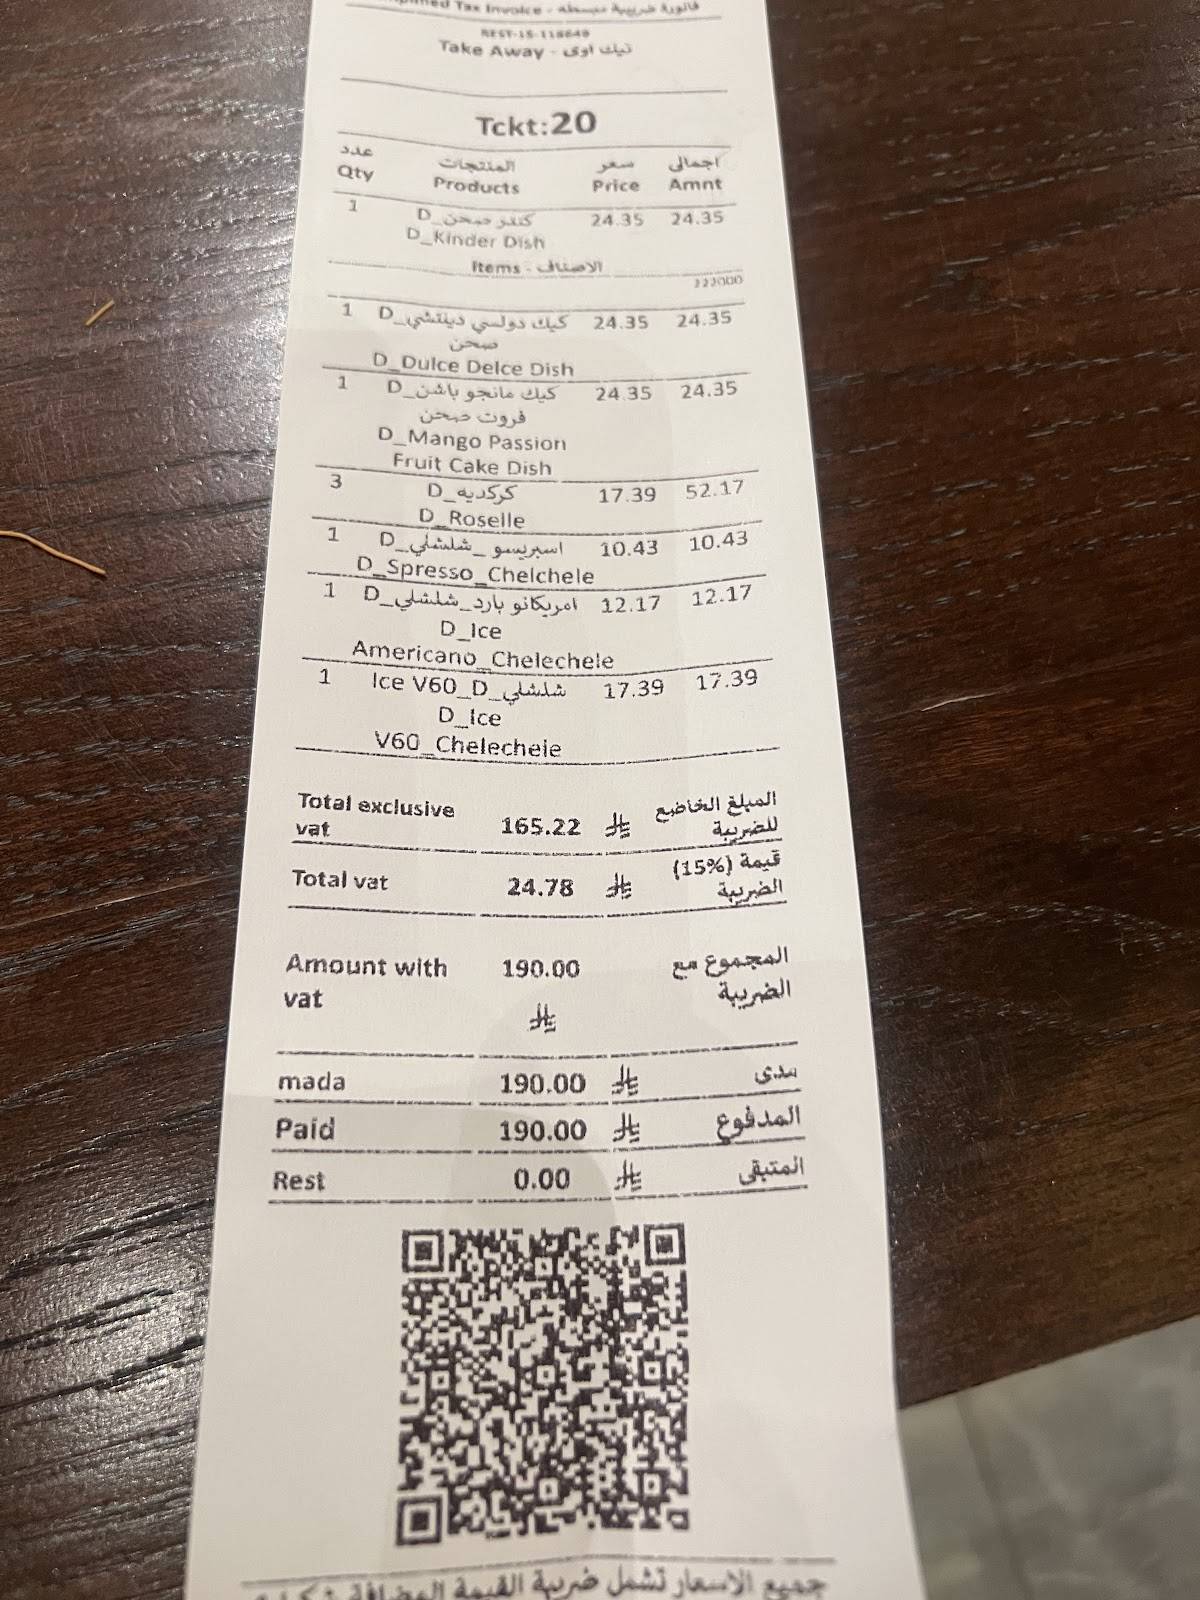 Tax Invoice - فاتورة ضريبية مبسطة
REST-15-118649
Take Away - تيك اوى
Tckt:20
عدد المنتجات سعر اجمالى
Qty Products Price Amnt
1 D_كندر صحن 24.35 24.35
D_Kinder Dish
Items - الاصناف
222000
1 D_كيك دولسي ديتشي 24.35 24.35
صحن
D_Dulce Delce Dish
1 D_كيك مانجو باشن 24.35 24.35
فروت صحن
D_Mango Passion
Fruit Cake Dish
3 D_كركديه 17.39 52.17
D_Roselle
1 D_اسبريسو_شلشلي 10.43 10.43
D_Spresso_Chelchele
1 D_امريكانو بارد_شلشلي 12.17 12.17
D_Ice
Americano_Chelechele
1 Ice V60_D_شلشلي 17.39 17.39
D_Ice
V60_Chelechele
Total exclusive vat 165.22 المبلغ الخاضع للضريبة
Total vat 24.78 قيمة (15%) الضريبة
Amount with vat 190.00 المجموع مع الضريبة
mada 190.00 مدى
Paid 190.00 المدفوع
Rest 0.00 المتبقى
جميع الاسعار تشمل ضريبة القيمة المضافة